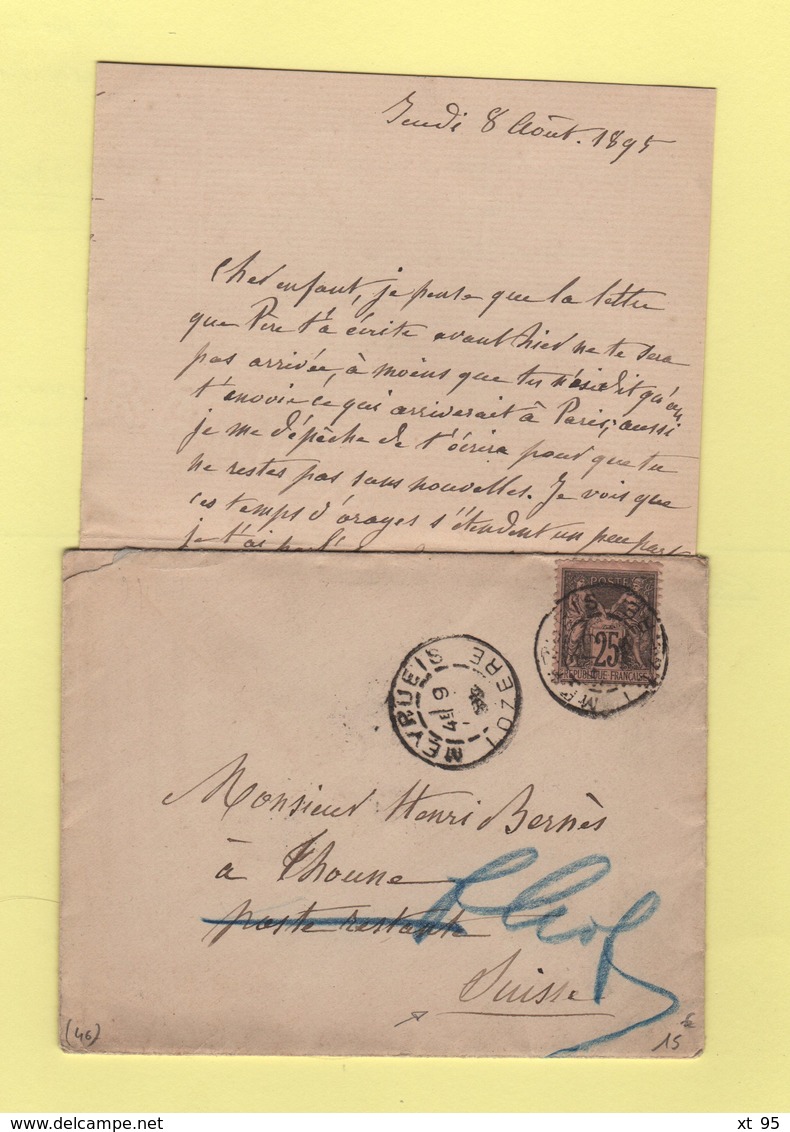 Jeudi 8 Août. 1895
Cher enfant, je pense que la lettre
que Père t'a écrite avant hier ne te sera
pas arrivée, à moins que tu n'aies dit qu'on
t'envoie ce qui arriverait à Paris; aussi
je me dépêche de t'écrire pour que tu
ne restes pas sans nouvelles. Je vois que
ces temps d'orages s'étendent un peu part
je t'ai
POSTE
25
REPUBLIQUE FRANÇAISE
MEYRUEIS
LOZERE
Monsieur Henri Bernès
à Thoune
poste restante
Suisse
(46)
15
xt 95